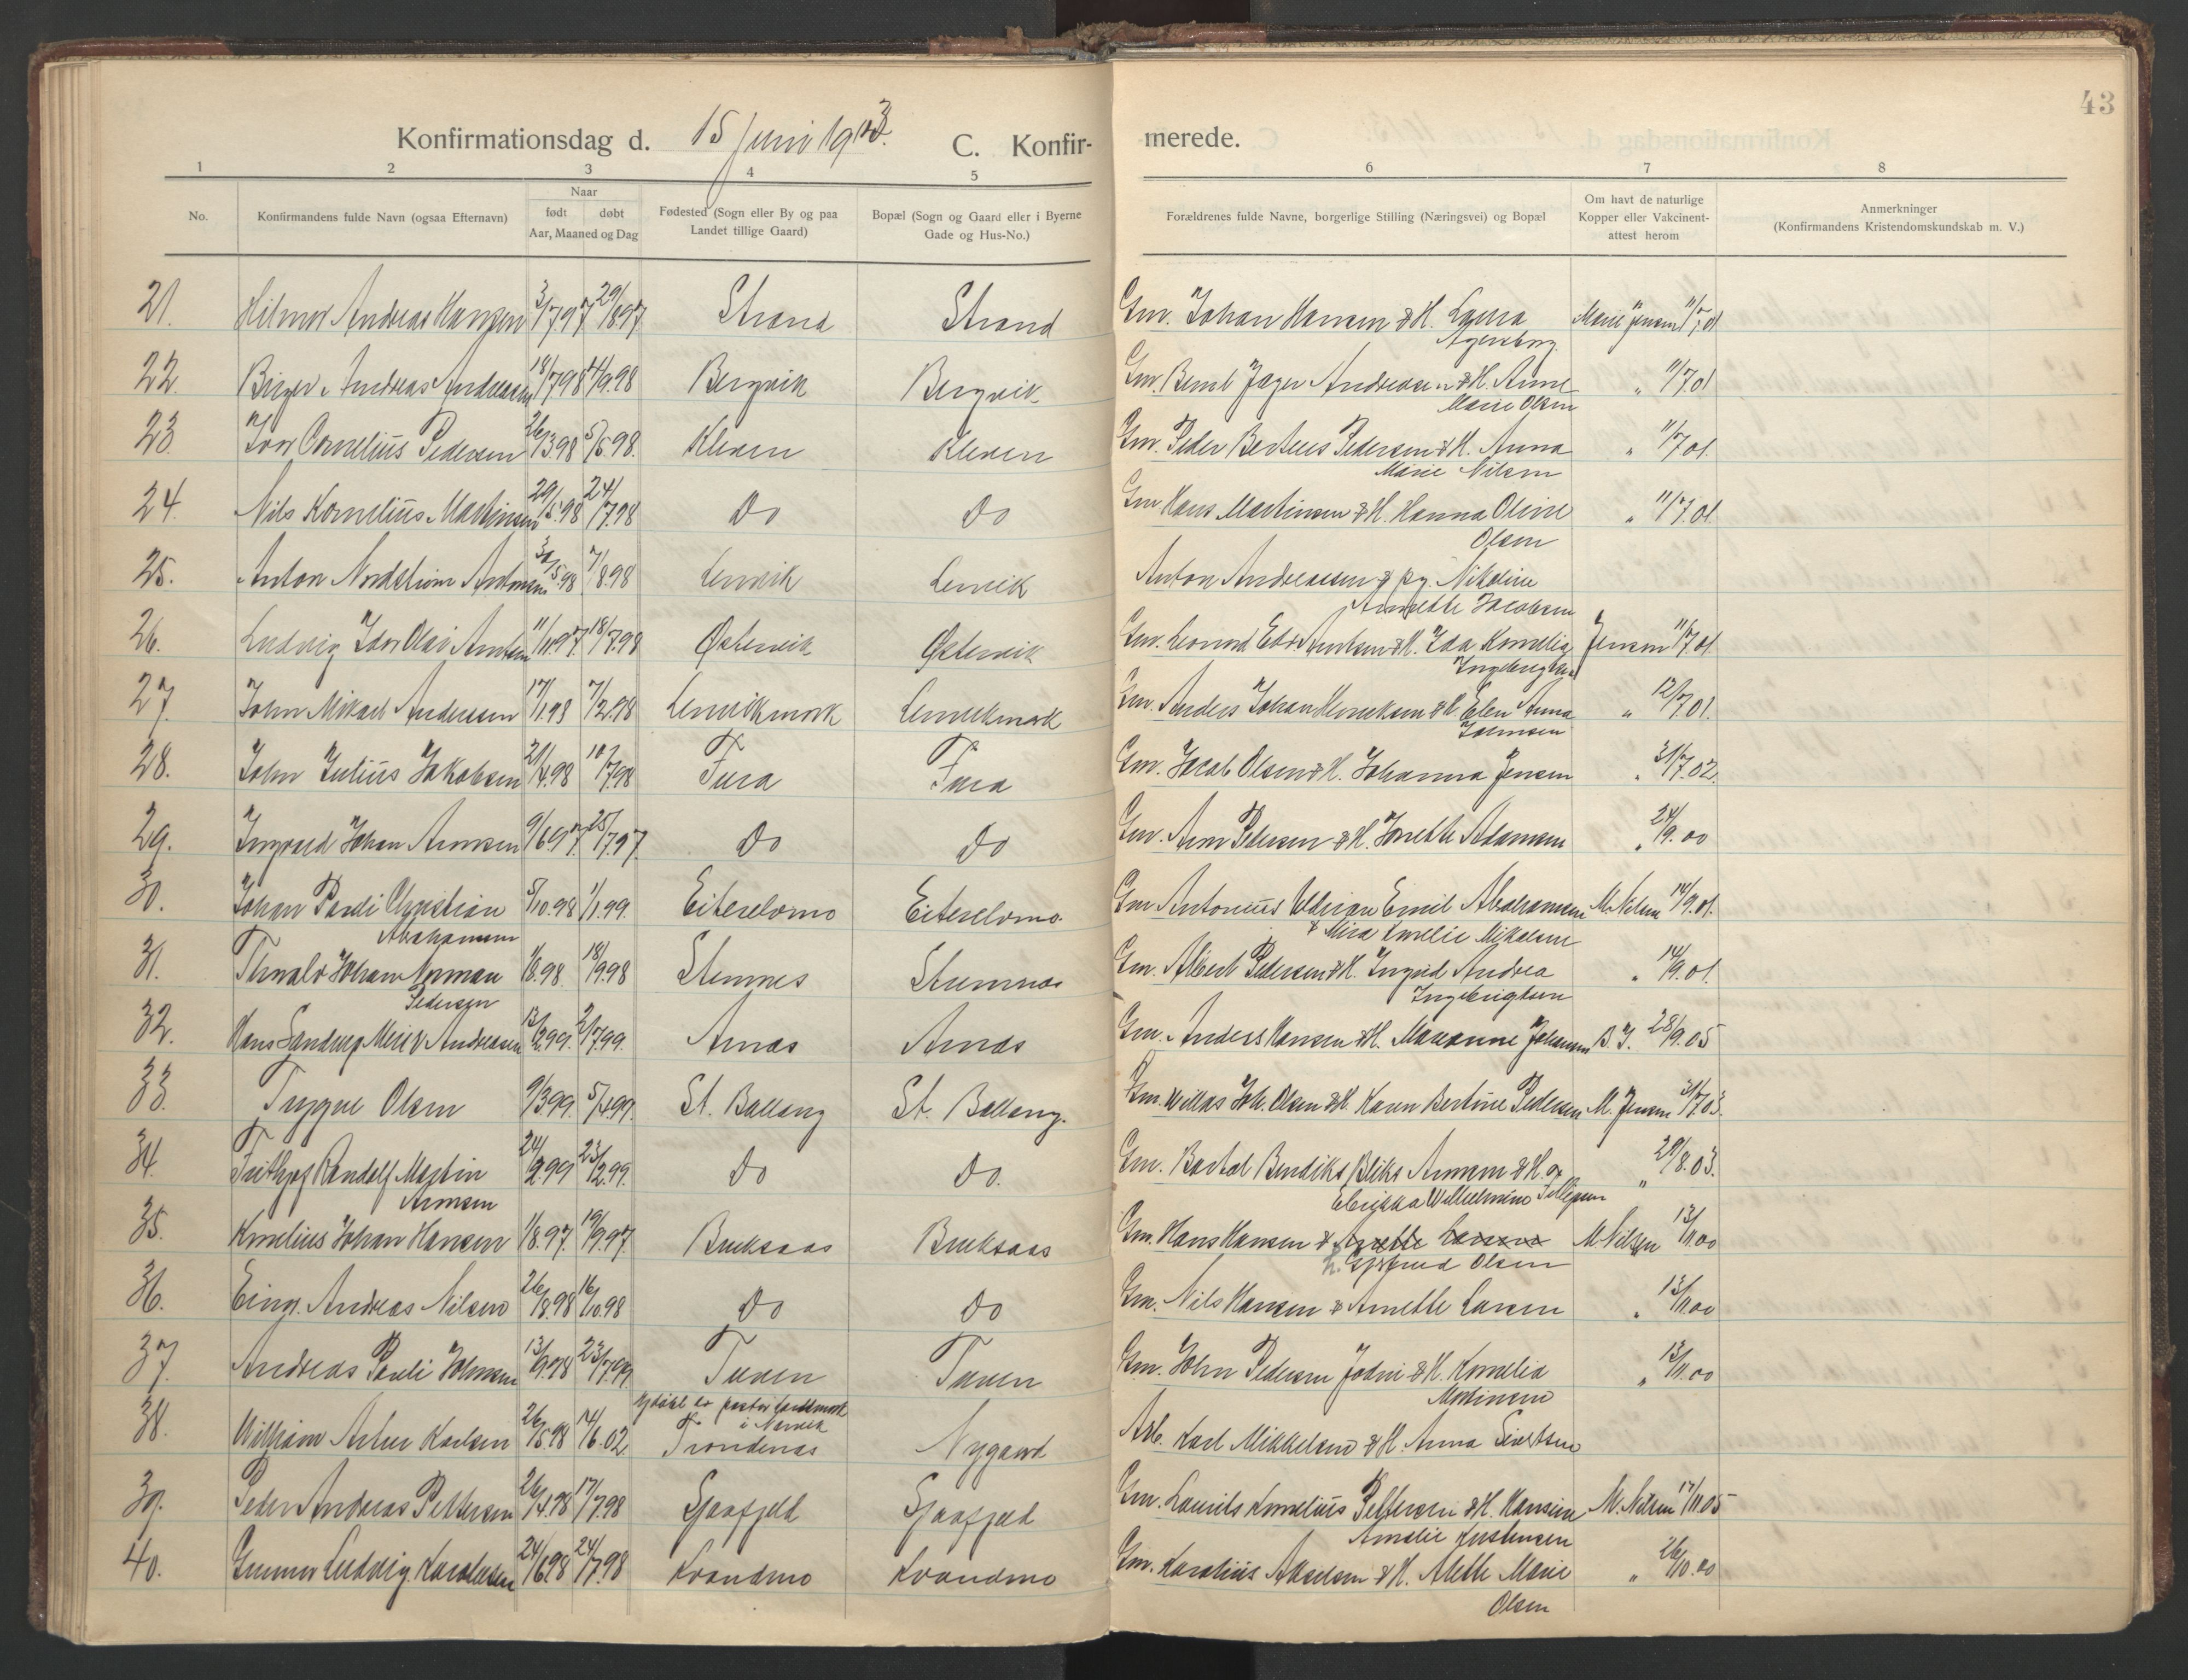 43
Konfirmationsdag d. 15 Juni 1913. C. Konfir- merede.
1 2 3 4 5 6 7 8
No. Konfirmandens fulde Navn (ogsaa Efternavn) Naar født døbt Aar, Maaned og Dag Fødested (Sogn eller By og paa Landet tillige Gaard) Bopæl (Sogn og Gaard eller i Byerne Gade og Hus-No.) Forældrenes fulde Navne, borgerlige Stilling (Næringsvei) og Bopæl Om havt de naturlige Kopper eller Vakcinent- attest herom Anmerkninger (Konfirmandens Kristendomskundskab m. V.)
21. Hilmar Andreas Hansen 3/7 97 29/8 97 Strand Strand Gm. Johan Hansen & H. Laura Marie Jensen 11/7 01
Agersborg
22. Birger Andreas Andreasen 18/7 98 4/9 98 Bergvik Bergvik Gm. Bernt Jager Andreasen & H. Anne " 11/7 01
Marie Olsen
23. Ivar Cornelius Pedersen 26/3 98 5/6 98. Kleven Kleven Gm. Peder Berteus Pedersen & H. Anna " 11/7 01.
Marie Nilsen
24. Nils Kornelius Martinsen 29/5 98 24/7 98 Do Do Gm Hans Martinsen & H. Hanna Oline " 11/7 01
Olsen
25. Anton Nordstrøm Antonsen 30/5 98 7/8 98 Lenvik Lenvik Anton Andreassen & pg. Nikoline
Annette Jacobsen
26. Ludvig Idar Olai Arntsen 11/11 97 18/7 98 Østervik Østervik Gm. Leonard Edv. Arntsen & H. Ida Kornelia Jensen 11/7 01
Ingebrigtsen
27. John Mikael Andersen 17/1 98 7/2 98 Lenvikmark Lenvikmark Gm. Anders Johan Henriksen & H. Elen Anna " 12/7 01.
Johnsen
28. John Julius Jakobsen 21/4 98 10/7 98 Fura Fura Gm. Jacob Olsen & H. Johanna Jensen " 31/7 02.
29. Ingvald Johan Arnesen 9/6 97 25/7 97 Do Do Gm. Arn Pedersen & H. Jonette Adamsen " 24/9. 00
30. Johan Pareli Christian 5/10. 98 1/1. 99. Eiterelvmo Eiterelvmo Gm Antonius Adrian Emil Abrahamsen M. Nilsen 14/9. 01.
Abrahamsen & Mira Amelie Mikalsen
31. Thorvald Johan Norman 1/8. 98. 18/9 98 Stemnes Stremnes Gm. Albert Pedersen & H. Ingrid Andrea " 14/9. 01
Pedersen Ingebrigtsen
32. Hans Sandrup Meier Andreasen 13/2 99. 2/7 99. Arnes Arnes Gm. Anders Hansen & H. Marianne Johansen B. J. 28/9. 05
33. Trygve Olsen 9/3 99. 5/4 99. St. Ballang St. Ballang. Gm. Joh. Olsen & H. Karen Bertine Pedersen M. Jensen 31/7 03.
34. Frithjof Randolf Martin 24/2 99 23/12. 99. Do Do. Gm. Bastal Bendiks Arnesen & H. " 29/8. 03.
Arnesen Wilhelmine
35. Kornelius Johan Hansen 1/8. 97. 19/9 97. Bruksaas Bruksaas Gm. Hans Hansen & Anette Larsen M. Nilsen 13/11. 00
h. Gjertrud Olsen
36. Einar Andreas Nilsen 26/8 98 16/10. 98 Do Do Gm. Nils Hansen & Anette Larsen " 13/11. 00
37. Andreas Pareli Johnsen 13/9 98 23/7 99. Turen Turen Gm. John Pedersen & H. Kornelia " 13/11. 00
Martinsen
38. William Artur Karlsen 26/5 98 14/6. 02 døbt av pastor i Narvik Trondenas Nygaard Arb. Karl Mikkelsen & H. Anna Sivertsen
39. Peder Andreas Pettersen 26/4 98 17/7. 98 Sjaafjeld Sjaafjeld Gm. Laurits Kornelius Pettersen & H. Hansine M. Nilsen 17/11. 05
Amalie Kristensen
40. Gunnar Ludvig Karolussen 24/6 98 24/7. 98 Kvandmo Kvandmo Gm. Karolius Akselsen & H. Alette Marie " 26/10. 00
Olsen